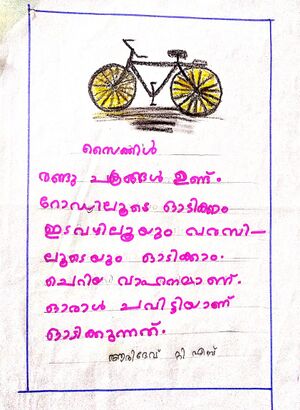 സൈക്കിൾ
രണ്ടു ചക്രങ്ങൾ ഉണ്ട്.
റോഡിലൂടെ ഓടിക്കാം
ഇടവഴിലൂയും വരമ്പി-
ലൂടെയും ഓടിക്കാം.
ചെറിയ വാഹനമാണ്.
ഒരാൾ ചവിട്ടിയാണ്
ഓടിക്കുന്നത്.
ആദിദേവ് പി എസ്